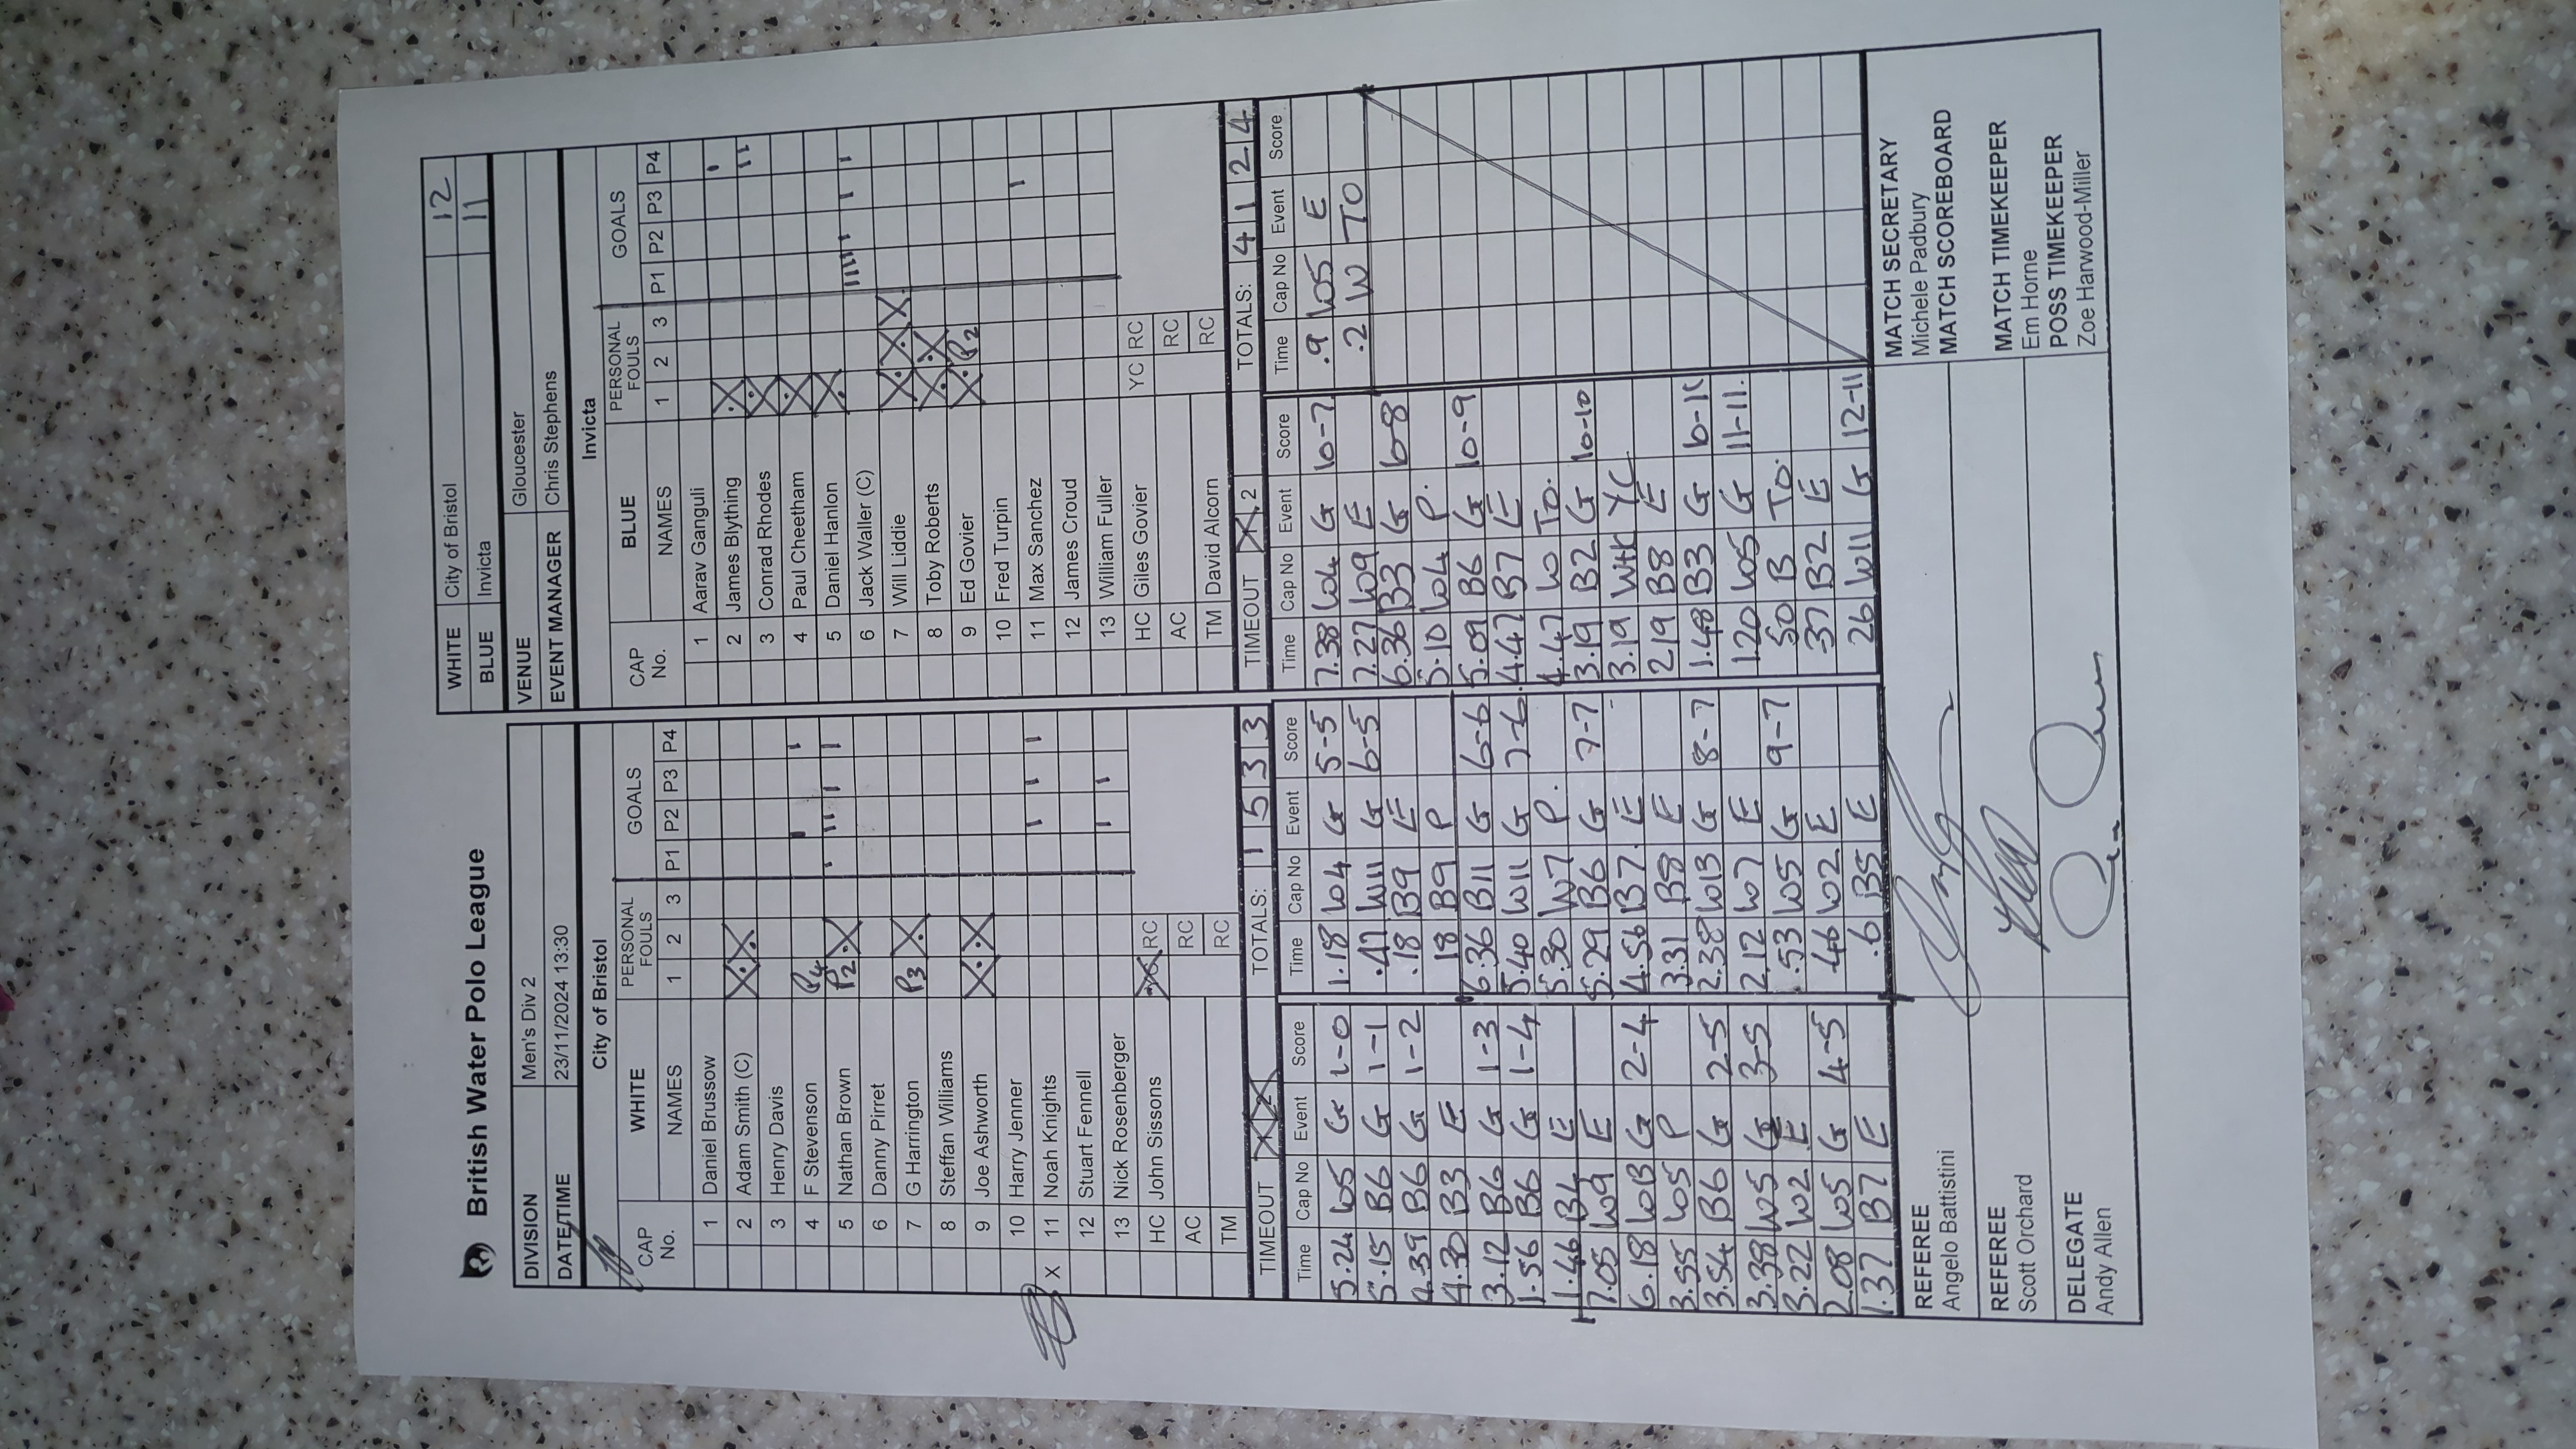 British Water Polo League
WHITE City of Bristol 12
BLUE Invicta 11
DIVISION Men's Div 2
DATE/TIME 23/11/2024 13:30
VENUE Gloucester
EVENT MANAGER Chris Stephens
City of Bristol
CAP No. WHITE NAMES PERSONAL FOULS 1 2 3 GOALS P1 P2 P3 P4
1 Daniel Brussow
2 Adam Smith (C)
3 Henry Davis
4 F Stevenson P4
5 Nathan Brown P2
6 Danny Pirret
7 G Harrington P3
8 Steffan Williams
9 Joe Ashworth
10 Harry Jenner
X 11 Noah Knights
12 Stuart Fennell
13 Nick Rosenberger
HC John Sissons RC
AC RC
TM RC
TIMEOUT 1 2 TOTALS: 1 5 3 3
Invicta
CAP No. BLUE NAMES PERSONAL FOULS 1 2 3 GOALS P1 P2 P3 P4
1 Aarav Ganguli
2 James Blything
3 Conrad Rhodes
4 Paul Cheetham
5 Daniel Hanlon
6 Jack Waller (C)
7 Will Liddie
8 Toby Roberts
9 Ed Govier P2
10 Fred Turpin
11 Max Sanchez
12 James Croud
13 William Fuller
HC Giles Govier YC RC
AC RC
TM David Alcorn RC
TIMEOUT 1 2 TOTALS: 4 1 2 4
Time Cap No Event Score
5.24 W5 G 1-0
5.15 B6 G 1-1
4.39 B6 G 1-2
4.30 B3 E
3.12 B6 G 1-3
1.56 B6 G 1-4
1.46 B4 E
7.05 W9 E
6.18 W13 G 2-4
3.55 W5 P
3.54 B6 G 2-5
3.38 W5 G 3-5
3.22 W2 E
2.08 W5 G 4-5
1.37 B7 E
Time Cap No Event Score
1.18 W4 G 5-5
.47 W11 G 6-5
.18 B9 E
18 B9 P
6.36 B11 G 6-6
5.40 W11 G 7-6
5.30 W7 P.
5.29 B6 G 7-7
4.56 B7 E
3.31 B8 E
2.38 W13 G 8-7
2.12 W7 E
.53 W5 G 9-7
46 W2 E
.6 B5 E
Time Cap No Event Score
7.38 W4 G 10-7
7.27 W9 E
6.36 B3 G 10-8
5.10 W4 P.
5.09 B6 G 10-9
4.47 B7 E
4.47 W TO.
3.19 B2 G 10-10
3.19 WHC YC
2.19 B8 E
1.48 B3 G 10-11
1.20 W5 G 11-11.
50 B TO.
37 B2 E
26 W11 G 12-11
Time Cap No Event Score
.9 W5 E
.2 W TO
REFEREE
Angelo Battistini
REFEREE
Scott Orchard
DELEGATE
Andy Allen
MATCH SECRETARY
Michele Padbury
MATCH SCOREBOARD
MATCH TIMEKEEPER
Em Horne
POSS TIMEKEEPER
Zoe Harwood-Miller